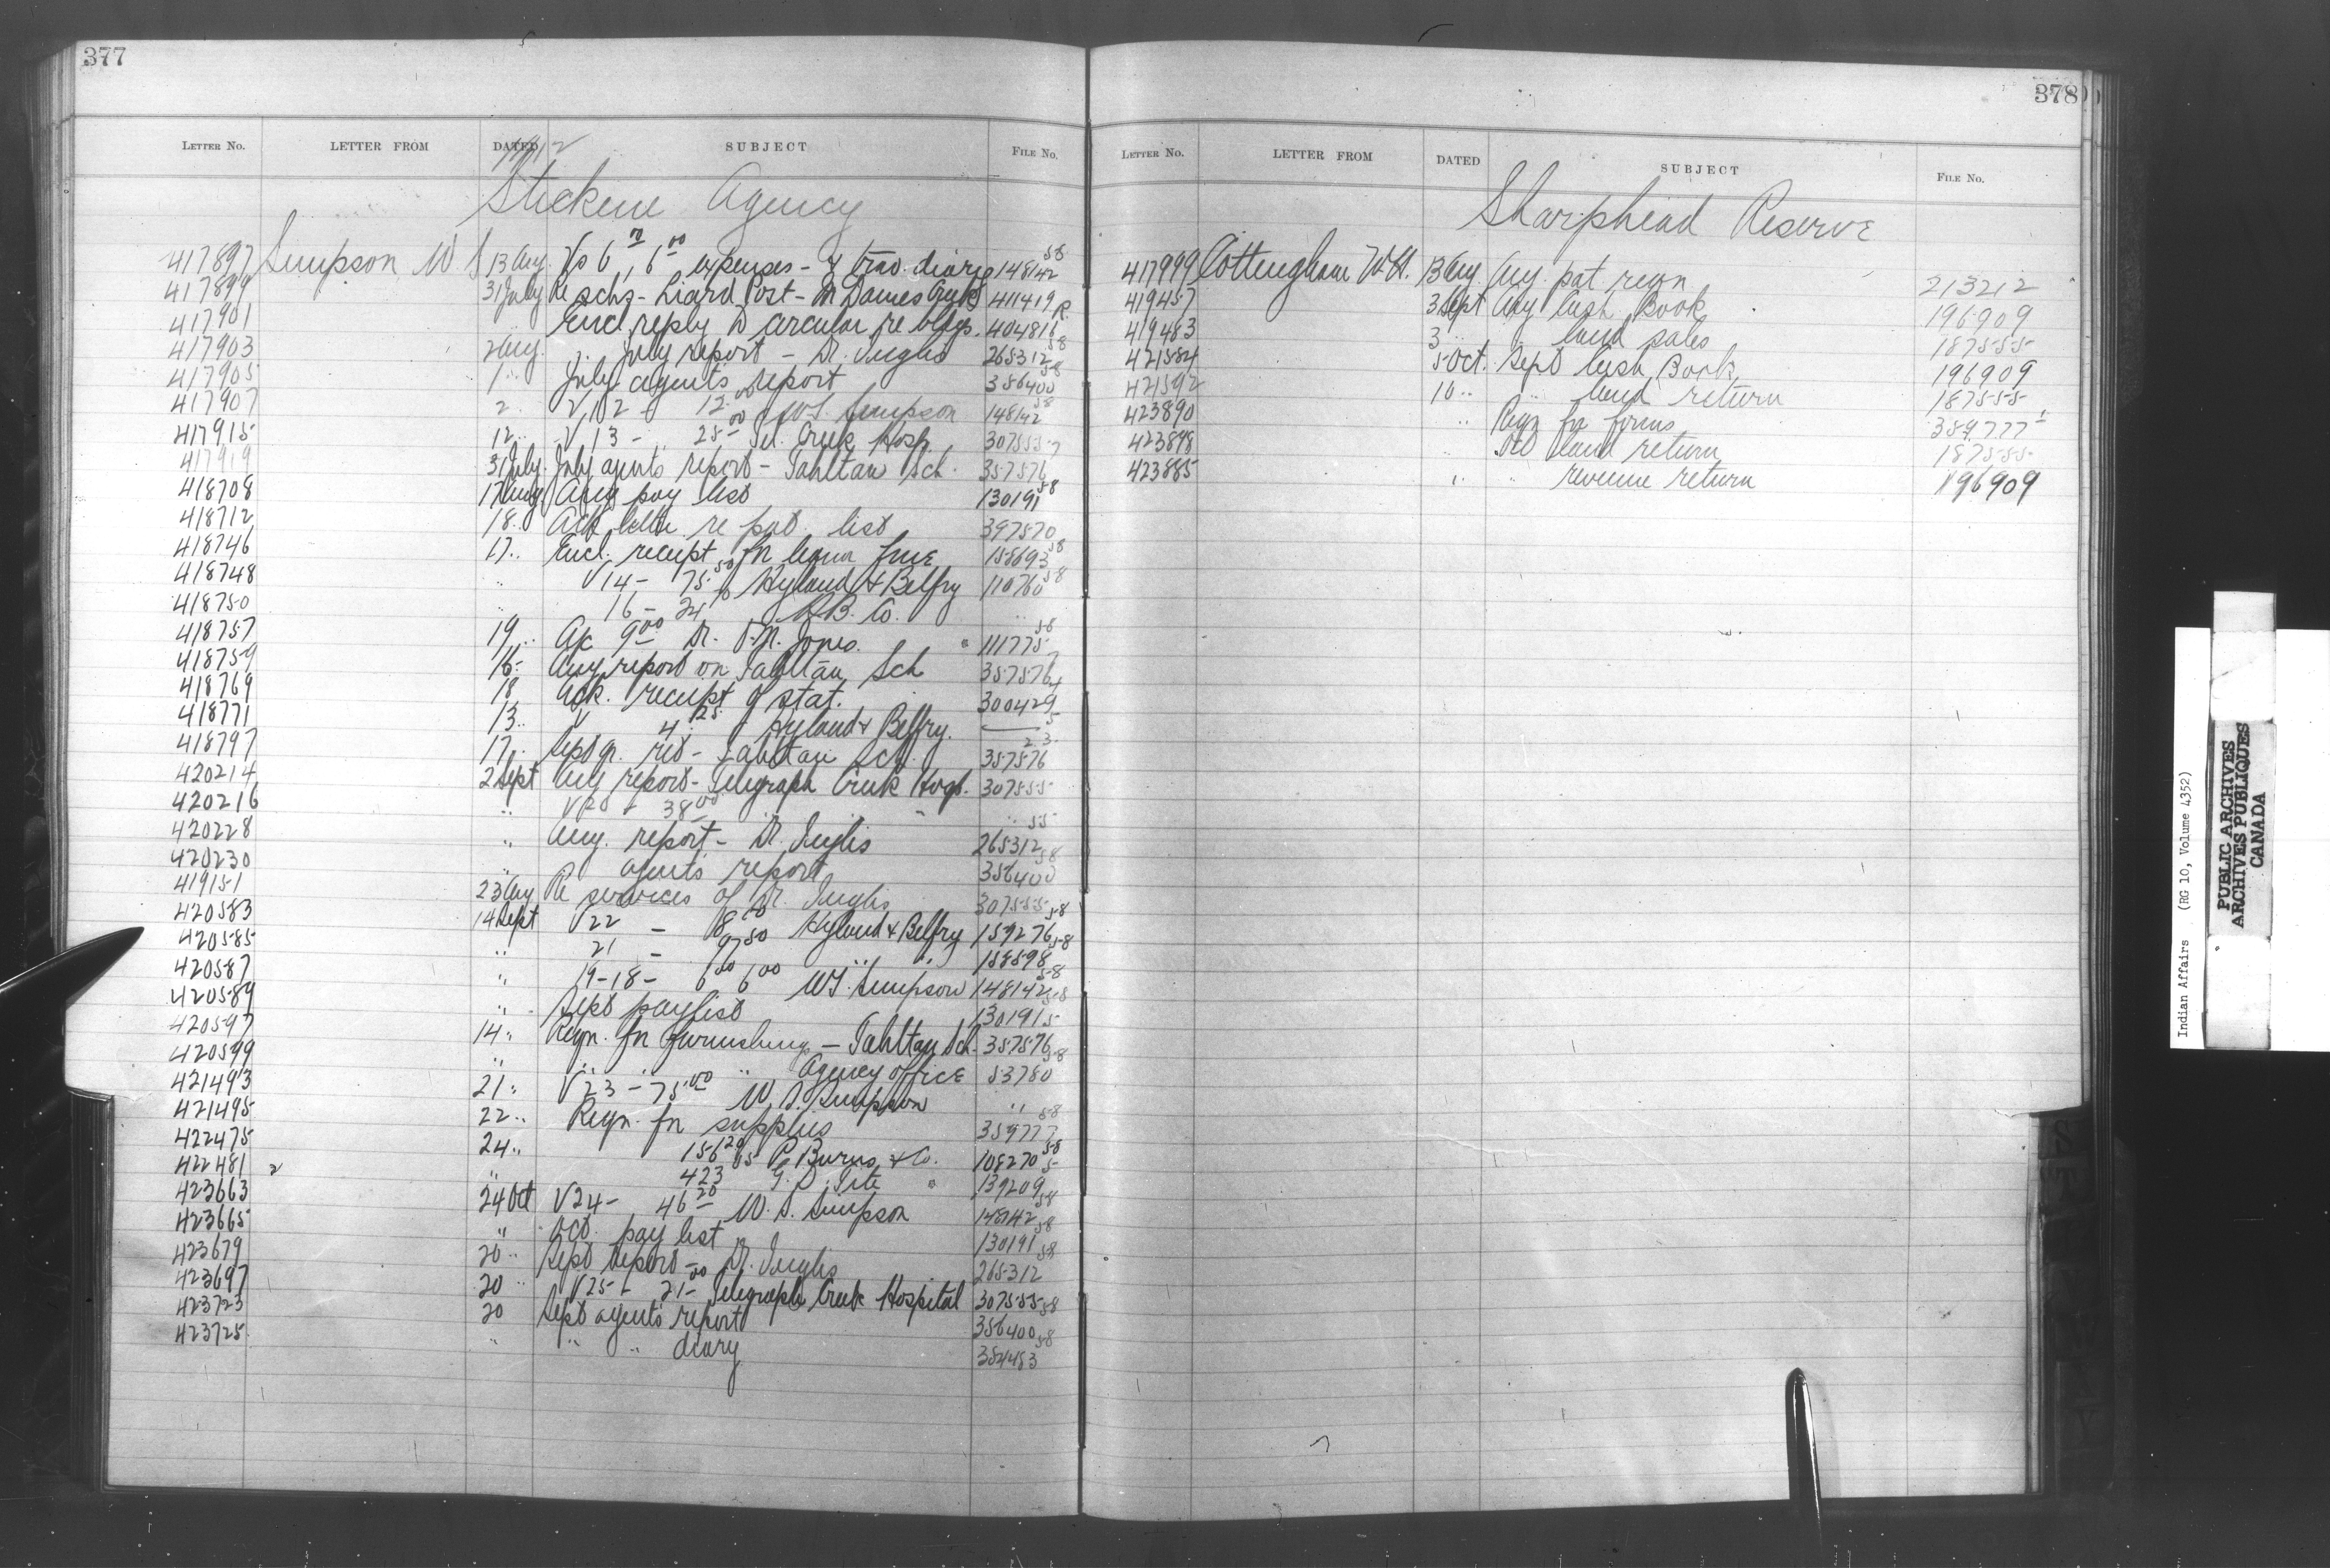 377
LETTER NO. LETTER FROM DATED SUBJECT FILE No.
1912
Stickene Agency
417897 Simpson W S 13 Aug. Vs 6 6 00 expenses - & trav. diary 148142 58
417899 31 July Re schs - Liard Post - McDames Creek 411419
417901 Encl. reply to circular re bldgs. 404816 R
417903 2 Aug. July report - Dr. Inglis 265312 58
417905 1 " July agents report 356400 58
417907 2 " V 12 - 12.00 WS. Simpson 148142 58
417915 12 " V 13 - 25 00 Tel. Creek Hosp. 307555
417919 31 July July agents report - Tahltan Sch. 357576 7
418708 17 Aug Aug pay list 130191 58
418712 18 " Ack letter re pat. list 397570
418746 17 " Encl. receipt for 158693 58
418748 " V 14 - 75.50 Hyland & Belfry 110760 58
418750 " 16 - 24 H.B. Co. "
418757 19 " A/c 9 00 Dr. Jones. 111775 58
418759 16 - Aug report on Tahltan Sch 357576 7
418769 18 Ack. receipt of stat. 300429 4
418771 13 " V 4.25 Hyland & Belfry.
418797 17 " Sept qr. ret - Tahltan Sch. 357576 23
420214 2 Sept Aug report - Telegraph Creek Hosp. 307555
420216 " V 20 - 38 00 "
420228 " Aug. report - Dr. Inglis 265312 55
420230 " agents report 356400 58
419151 23 Aug Re services of Dr. Inglis 307555
420583 14 Sept V 22 - 8 00 Hyland & Belfry 159276 58
420585 " 21 - 97 50 " " 158598 58
420587 " 19 - 18 - 6 00 6 00 WS. Simpson 148142 58
420589 " Sept pay list 130191 58
420597 14 " Reqn. for furnishings - Tahltan Sch. 357576 5
420599 " " " " Agency office 53780 58
421493 21 " V 23 - 75.00 W. S. Simpson "
421495 22 " Reqn. for supplies 359777 58
422475 24 " 156 20 P. Burns & Co. 108270 58
422481 2 " 423 05 G. D. Tite " 139209 5
423663 24 Oct V 24 - 46 20 W. S. Simpson 148142 58
423665 " Oct. pay list 130191 58
423679 20 " Sept report - Dr. Inglis 265312 58
423697 20 " V 25 - 21 00 Telegraph Creek Hospital 307555
423723 20 Sept agents report 356400 58
423725 " " " diary 384483 58
378
LETTER NO. LETTER FROM DATED SUBJECT FILE No.
Sharphead Reserve
417999 Cottingham W.H. 13 Aug Aug. pat reqn 213212
419457 3 Sept Aug Cash Book 196909
419483 3 " " land sales 187555
421584 5 Oct. Sept Cash Book 196909
421592 10 " " land return 187555
423890 " Reqn for forms 359777
423898 " Oct land return 187555
423885 " " revenue return 196909
Indian Affairs (RG 10, Volume 4352)
PUBLIC ARCHIVES
ARCHIVES PUBLIQUES
CANADA